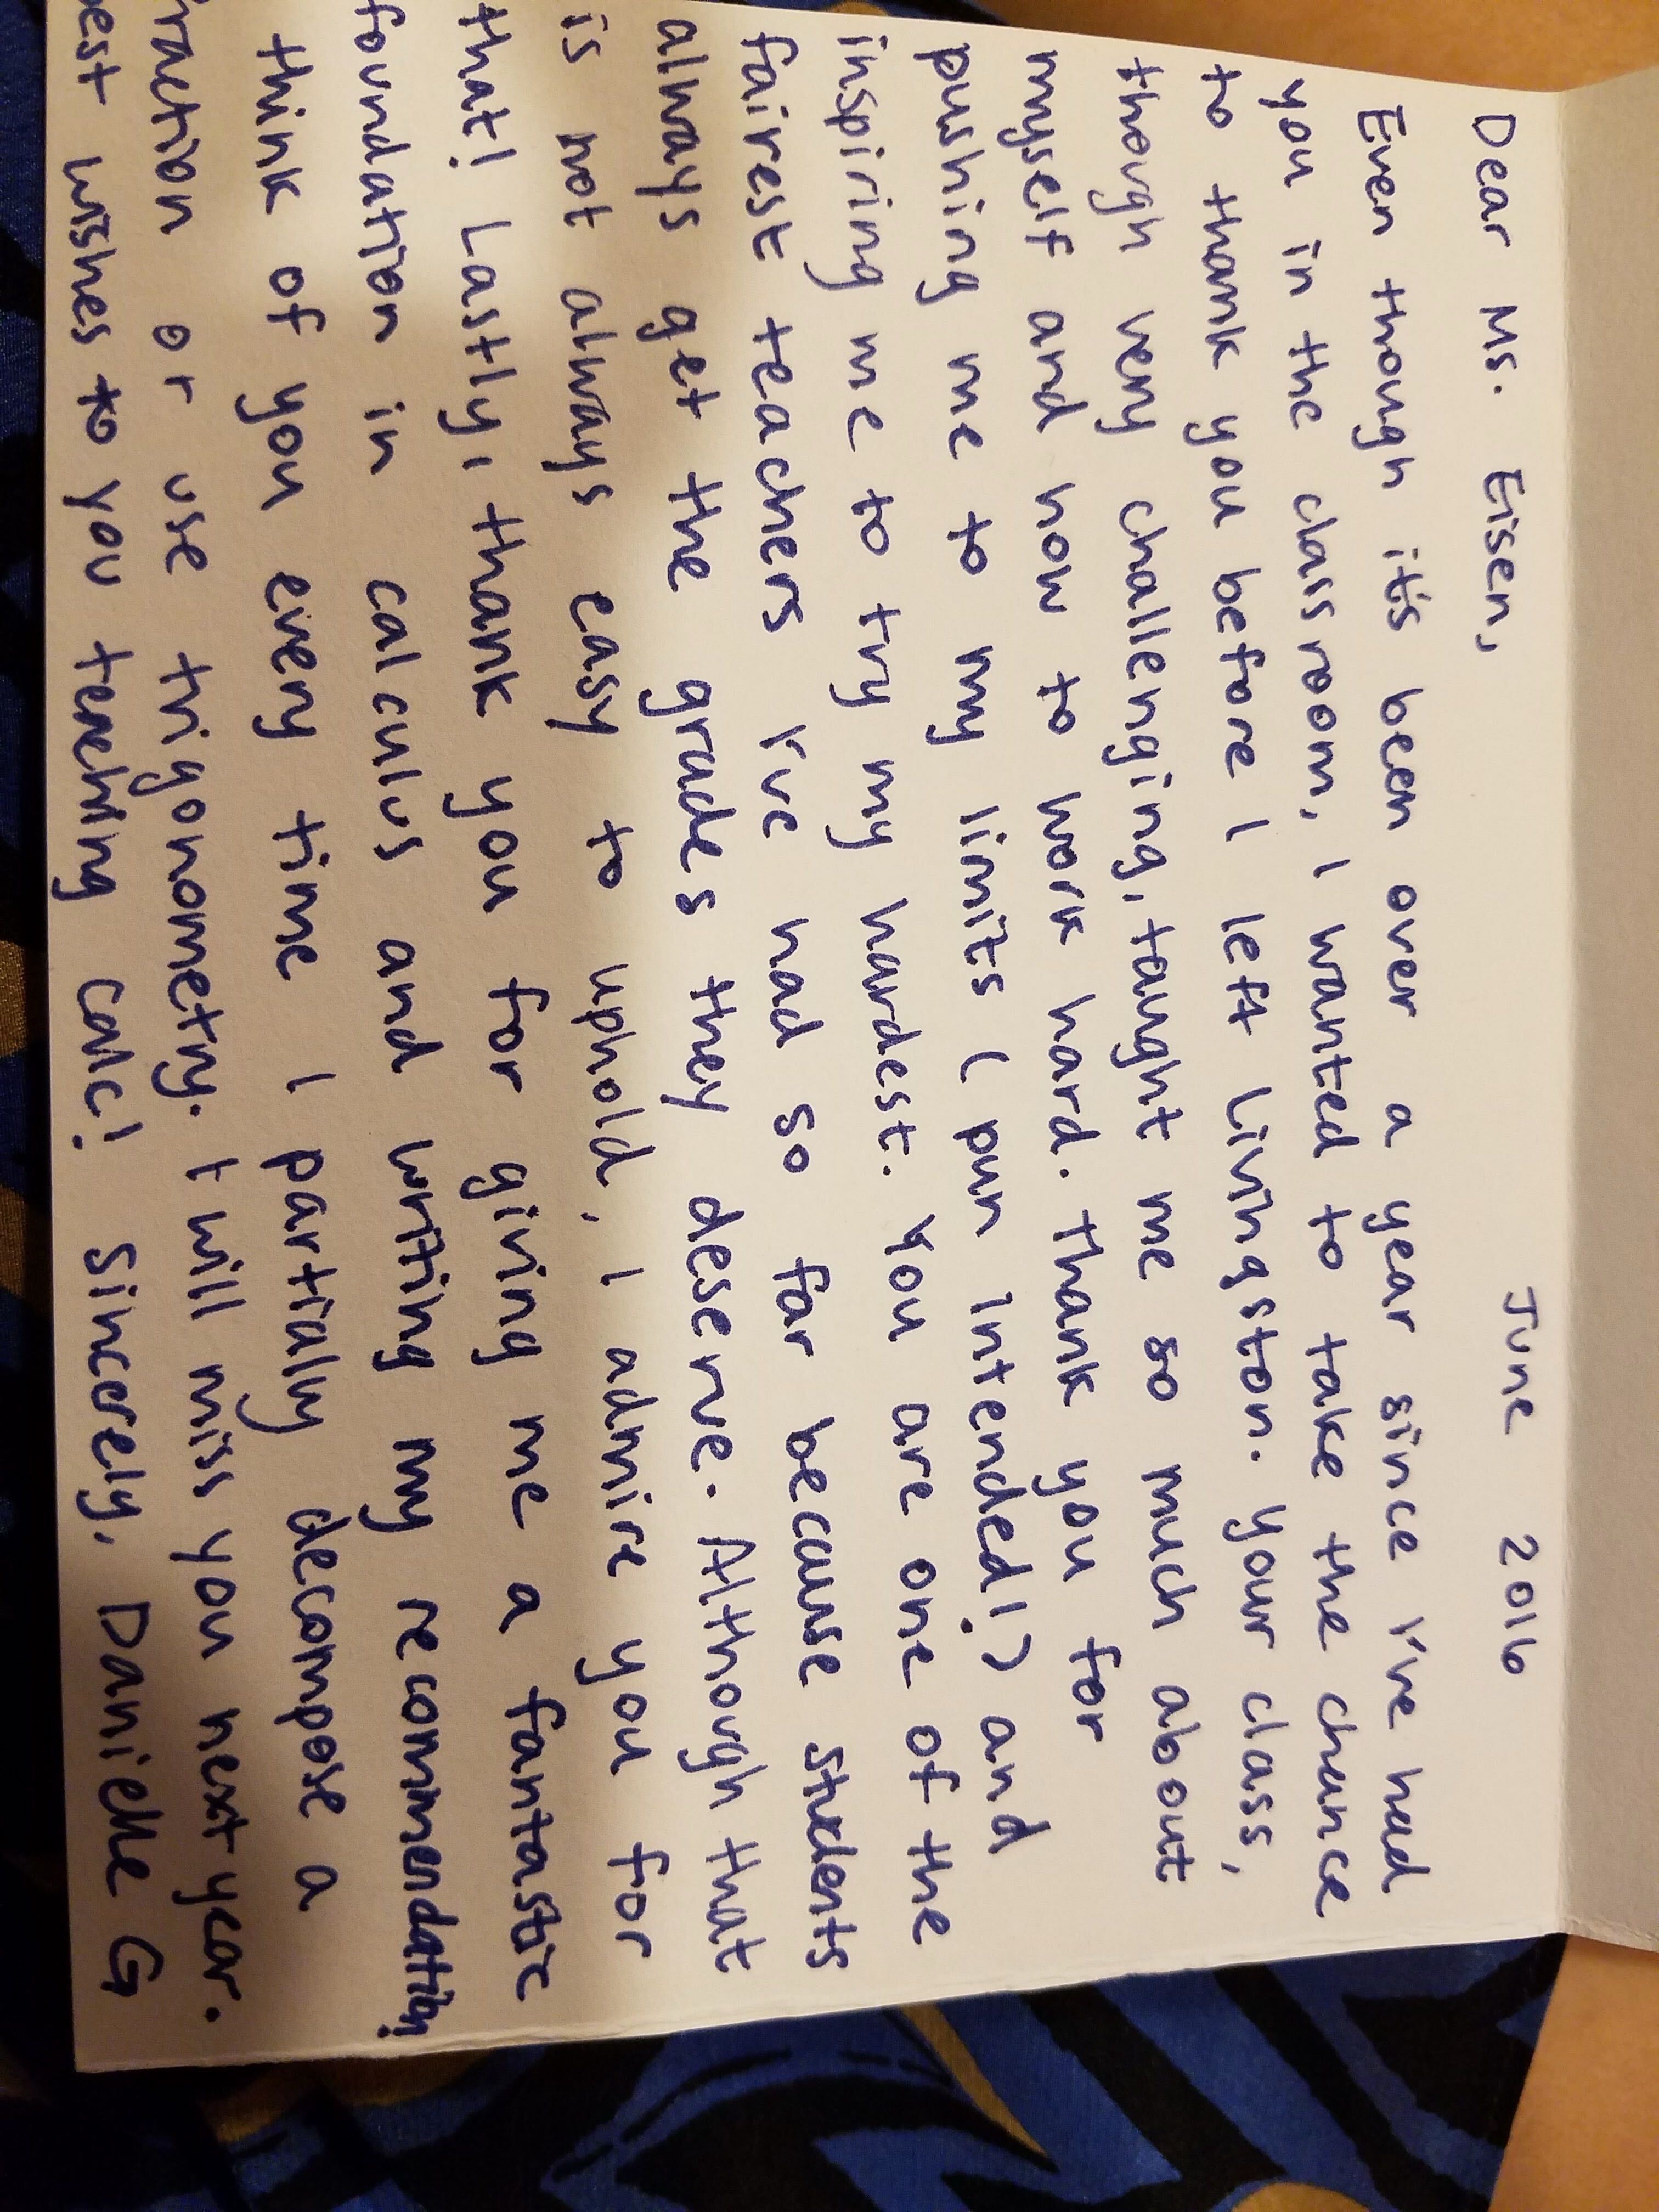 June 2016
Dear Ms. Eisen,
Even though it's been over a year since I've had
you in the classroom, I wanted to take the chance
to thank you before I left Livingston. Your class,
though very challenging, taught me so much about
myself and how to work hard. Thank you for
pushing me to my limits (pun intended!) and
inspiring me to try my hardest. You are one of the
fairest teachers I've had so far because students
always get the grades they deserve. Although that
is not always easy to uphold, I admire you for
that! Lastly, thank you for giving me a fantastic
foundation in calculus and writing my recommendation!
think of you every time I partially decompose a
raction or use trigonometry. I will miss you next year.
est wishes to you teaching calc! Sincerely, Danielle G